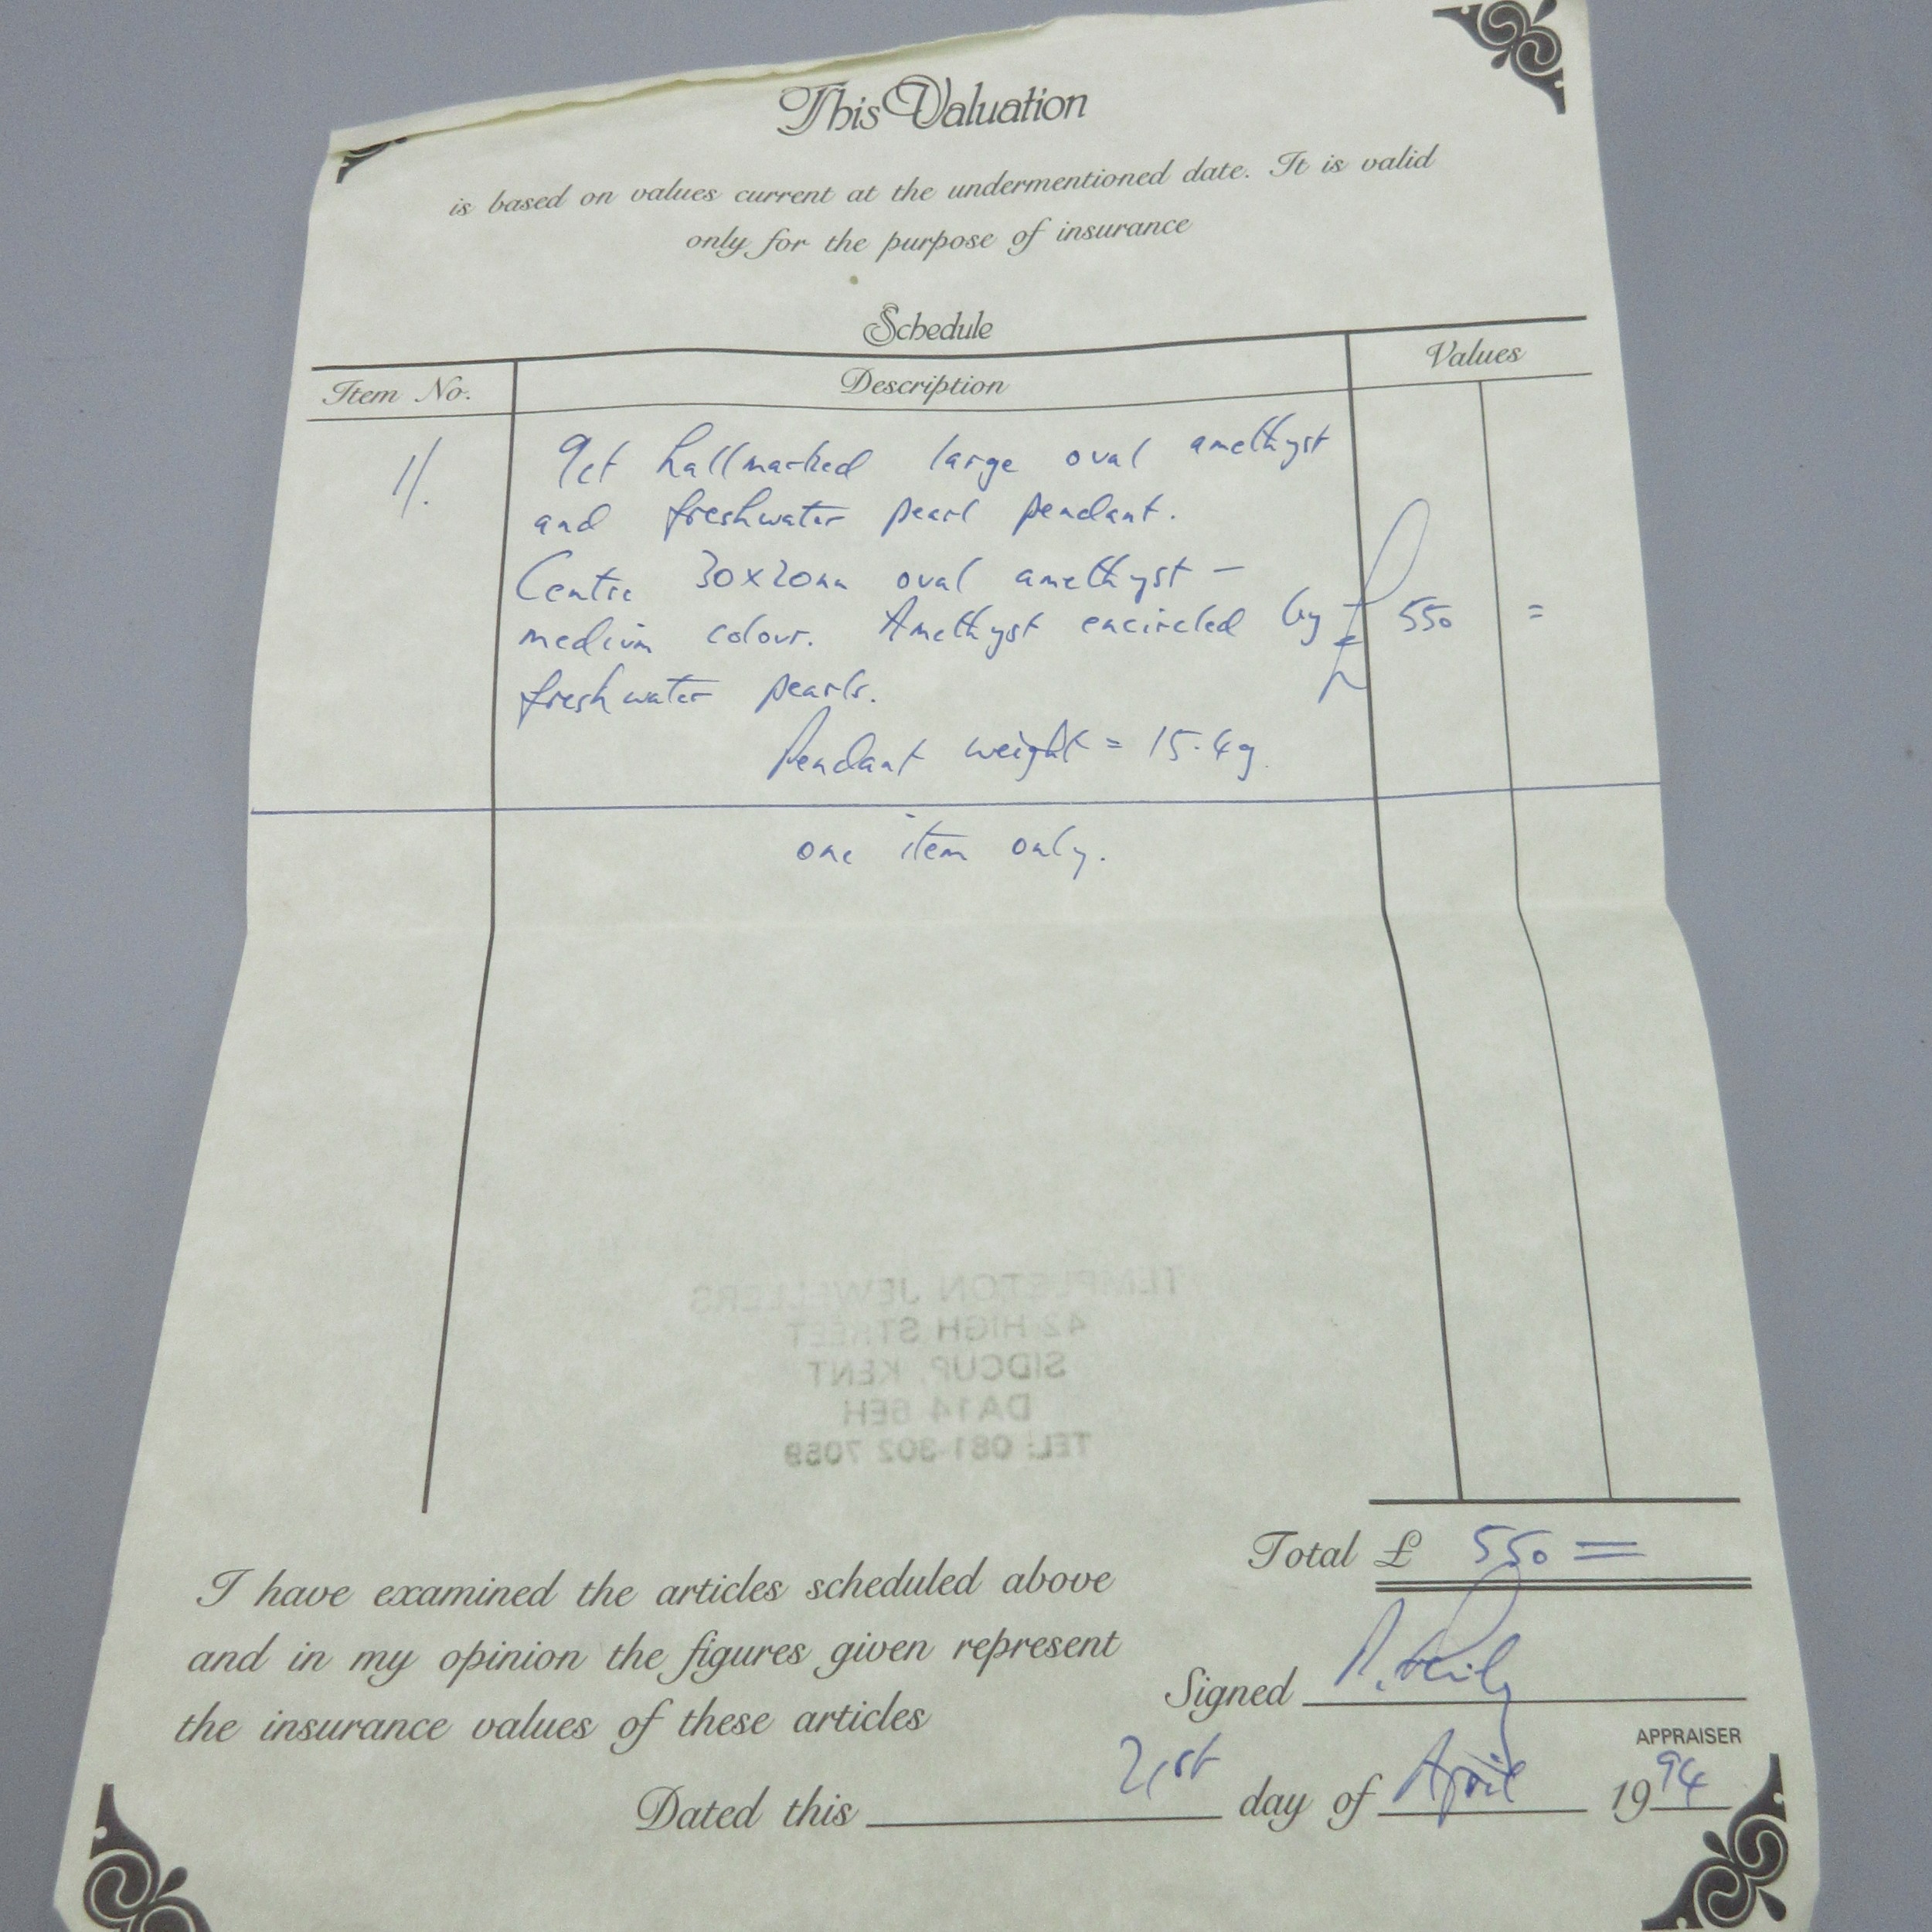 This Valuation
is based on values current at the undermentioned date. It is valid
only for the purpose of insurance
Schedule
Item No. Description Values
1/. 9ct hallmarked large oval amethyst
and freshwater pearl pendant.
Centre 30x20mm oval amethyst –
medium colour. Amethyst encircled by £ 550 =
freshwater pearls.
Pendant weight = 15.4g.
one item only.
TEMPLETON JEWELLERS
42 HIGH STREET
SIDCUP, KENT
DA14 6EH
TEL: 081-302 7059
Total £ 550 =
I have examined the articles scheduled above
and in my opinion the figures given represent
the insurance values of these articles
Signed
APPRAISER
Dated this 21st day of April 1994